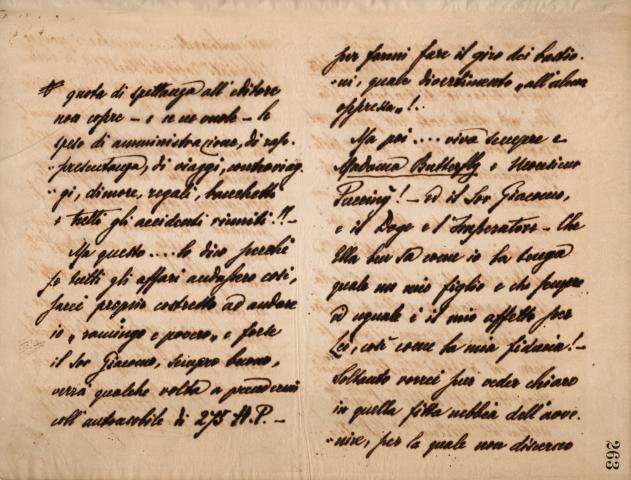 # quota di spettanza all'editore
non copre – e ne vuole – le
spese di amministrazione, di rap-
"presentanza, di viaggi, controviag-
"gi, dimore, regali, banchetti
e tutti gli accidenti riuniti!! –
Ma questo .... lo dico perchè
se tutti gli affari andassero così,
sarei proprio costretto ad andare
io „ramingo e povero„ e forse
il Sor Giacomo, sempre buono,
verrà qualche volta a prendermi
coll'automobile di 275 H.P. –
per farmi fare il giro dei bastio-
"ni, quale divertimento „all'alma
oppressa„!..
Ma poi .... viva sempre e
Madama Butterfly e Monsieur
Pucciny! – ed il Sor Giacomo,
e il Doge e l'Imperatore – Che
Ella ben sa come io La tenga
quale un mio figlio e che sempre
ed uguale è il mio affetto per
Lei, così come la mia fiducia! –
Soltanto vorrei pur veder chiaro
in quella fitta nebbia dell'avve-
"nire, per la quale non discerno
263